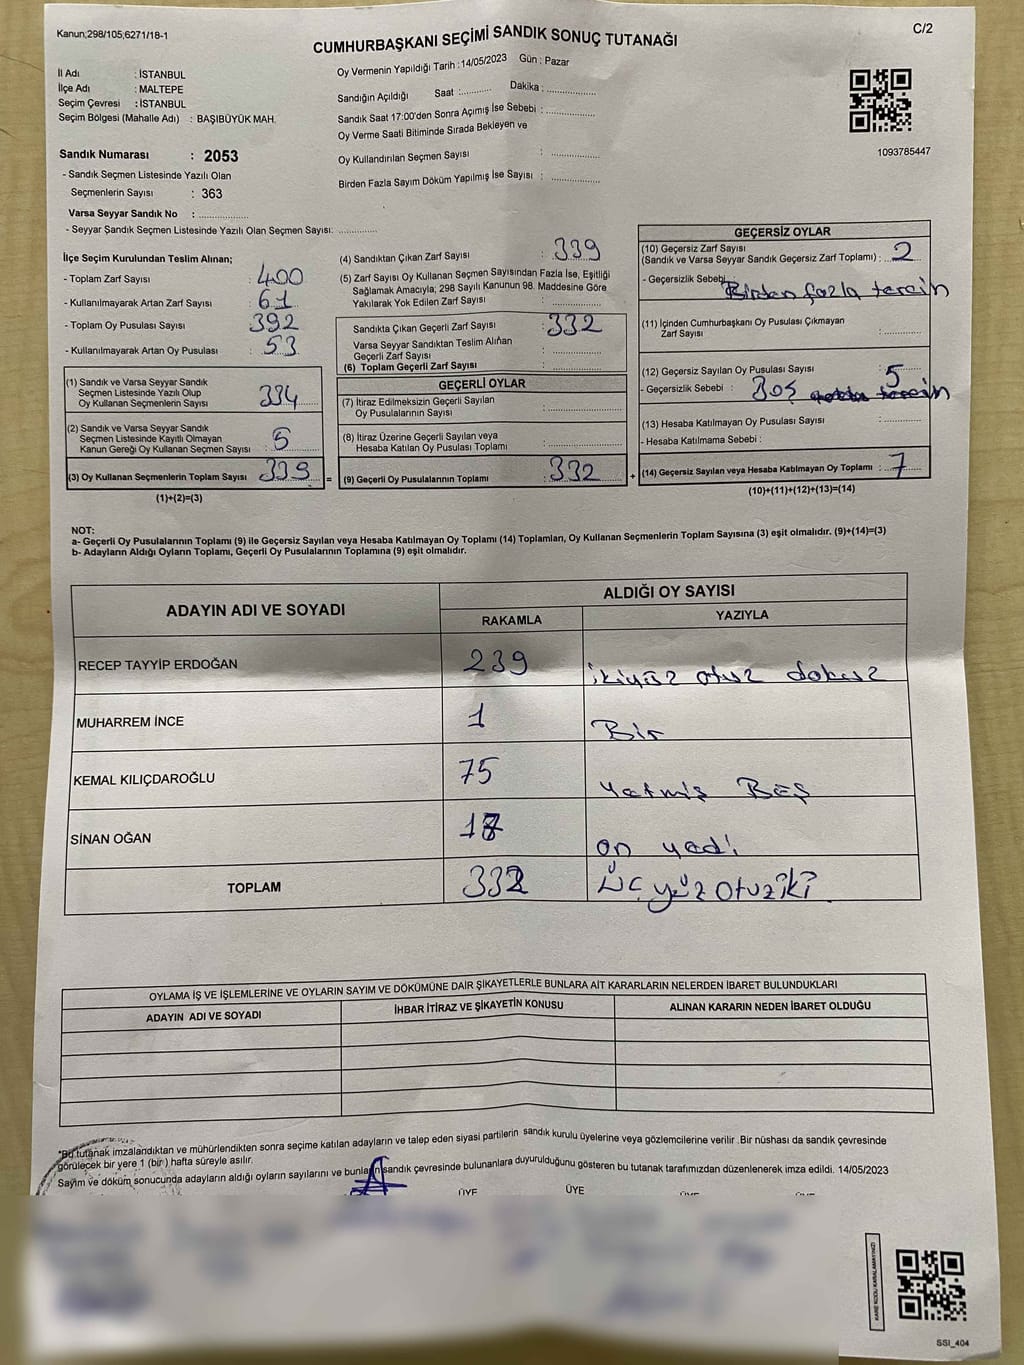 Kanun;298/105;6271/18-1
C/2
CUMHURBAŞKANI SEÇİMİ SANDIK SONUÇ TUTANAĞI
İl Adı : İSTANBUL
İlçe Adı : MALTEPE
Seçim Çevresi : İSTANBUL
Seçim Bölgesi (Mahalle Adı) : BAŞIBÜYÜK MAH.
Sandık Numarası : 2053
- Sandık Seçmen Listesinde Yazılı Olan
Seçmenlerin Sayısı : 363
Varsa Seyyar Sandık No : ..................
- Seyyar Sandık Seçmen Listesinde Yazılı Olan Seçmen Sayısı: ..............
Oy Vermenin Yapıldığı Tarih : 14/05/2023 Gün : Pazar
Sandığın Açıldığı Saat :............ Dakika : ..................
Sandık Saat 17:00'den Sonra Açımış İse Sebebi : ..................
Oy Verme Saati Bitiminde Sırada Bekleyen ve
Oy Kullandırılan Seçmen Sayısı : ..................
Birden Fazla Sayım Döküm Yapılmış İse Sayısı : ..................
1093785447
İlçe Seçim Kurulundan Teslim Alınan;
- Toplam Zarf Sayısı : 400
- Kullanılmayarak Artan Zarf Sayısı : 61
- Toplam Oy Pusulası Sayısı : 392
- Kullanılmayarak Artan Oy Pusulası : 53
(1) Sandık ve Varsa Seyyar Sandık
Seçmen Listesinde Yazılı Olup
Oy Kullanan Seçmenlerin Sayısı : 334
(2) Sandık ve Varsa Seyyar Sandık
Seçmen Listesinde Kayıtlı Olmayan
Kanun Gereği Oy Kullanan Seçmen Sayısı : 5
(3) Oy Kullanan Seçmenlerin Toplam Sayısı : 339 =
(1)+(2)=(3)
(4) Sandıktan Çıkan Zarf Sayısı : 339
(5) Zarf Sayısı Oy Kullanan Seçmen Sayısından Fazla İse, Eşitliği
Sağlamak Amacıyla; 298 Sayılı Kanunun 98. Maddesine Göre
Yakılarak Yok Edilen Zarf Sayısı : ..................
Sandıkta Çıkan Geçerli Zarf Sayısı : 332
Varsa Seyyar Sandıktan Teslim Alıñan
Geçerli Zarf Sayısı : ..................
(6) Toplam Geçerli Zarf Sayısı : ..................
GEÇERLİ OYLAR
(7) İtiraz Edilmeksizin Geçerli Sayılan
Oy Pusulalarının Sayısı : ..................
(8) İtiraz Üzerine Geçerli Sayılan veya
Hesaba Katılan Oy Pusulası Toplamı : ..................
(9) Geçerli Oy Pusulalarının Toplamı : 332 +
GEÇERSİZ OYLAR
(10) Geçersiz Zarf Sayısı
(Sandık ve Varsa Seyyar Sandık Geçersiz Zarf Toplamı) : 2
- Geçersizlik Sebebi Birden fazla tercih
(11) İçinden Cumhurbaşkanı Oy Pusulası Çıkmayan
Zarf Sayısı : ..............
(12) Geçersiz Sayılan Oy Pusulası Sayısı : 5
- Geçersizlik Sebebi : Boş
(13) Hesaba Katılmayan Oy Pusulası Sayısı : ..............
- Hesaba Katılmama Sebebi :
(14) Geçersiz Sayılan veya Hesaba Katılmayan Oy Toplamı : 7
(10)+(11)+(12)+(13)=(14)
NOT:
a- Geçerli Oy Pusulalarının Toplamı (9) ile Geçersiz Sayılan veya Hesaba Katılmayan Oy Toplamı (14) Toplamları, Oy Kullanan Seçmenlerin Toplam Sayısına (3) eşit olmalıdır. (9)+(14)=(3)
b- Adayların Aldığı Oyların Toplamı, Geçerli Oy Pusulalarının Toplamına (9) eşit olmalıdır.
ADAYIN ADI VE SOYADI
ALDIĞI OY SAYISI
RAKAMLA
YAZIYLA
RECEP TAYYİP ERDOĞAN 239 ikiyüz otuz dokuz
MUHARREM İNCE 1 Bir
KEMAL KILIÇDAROĞLU 75 Yetmiş Beş
SİNAN OĞAN 17 on yedi
TOPLAM 332 Üç yüz otuziki
OYLAMA İŞ VE İŞLEMLERİNE VE OYLARIN SAYIM VE DÖKÜMÜNE DAİR ŞİKAYETLERLE BUNLARA AİT KARARLARIN NELERDEN İBARET BULUNDUKLARI
ADAYIN ADI VE SOYADI
İHBAR İTİRAZ VE ŞİKAYETİN KONUSU
ALINAN KARARIN NEDEN İBARET OLDUĞU
*Bu tutanak imzalandıktan ve mühürlendikten sonra seçime katılan adayların ve talep eden siyasi partilerin sandık kurulu üyelerine veya gözlemcilerine verilir .Bir nüshası da sandık çevresinde
görülecek bir yere 1 (bir) hafta süreyle asılır.
Sayım ve döküm sonucunda adayların aldığı oyların sayılarını ve bunların sandık çevresinde bulunanlara duyurulduğunu gösteren bu tutanak tarafımızdan düzenlenerek imza edildi. 14/05/2023
ÜYE ÜYE
KARE KODU KARALAMAYINIZ!
SSİ_404